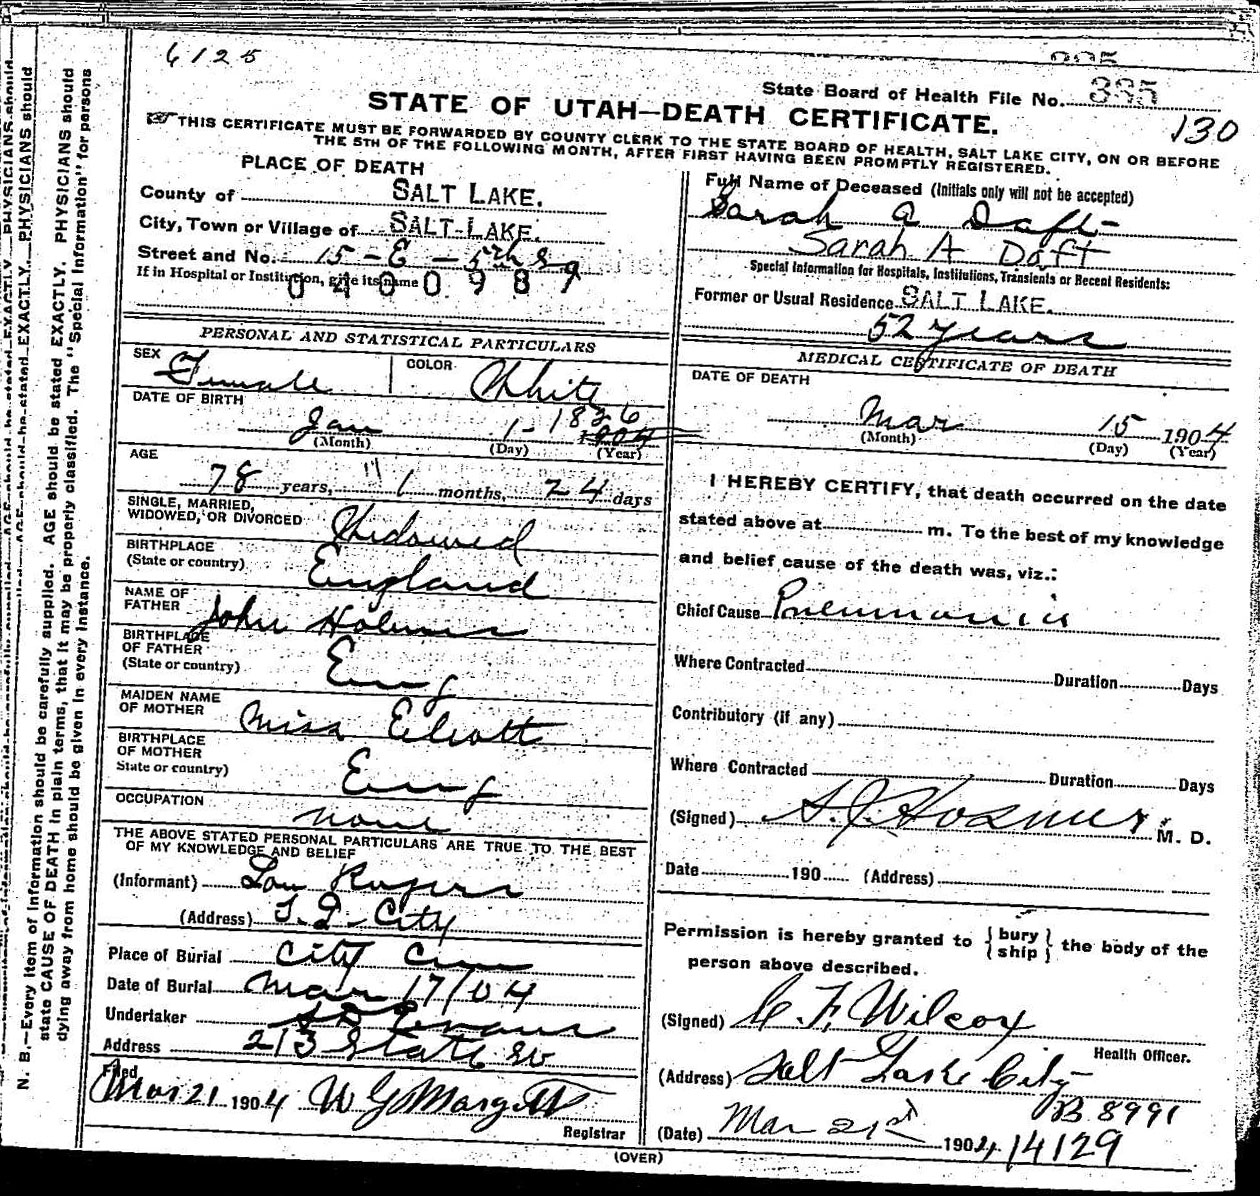 6125
State Board of Health File No. 335
STATE OF UTAH—DEATH CERTIFICATE.
130
THIS CERTIFICATE MUST BE FORWARDED BY COUNTY CLERK TO THE STATE BOARD OF HEALTH, SALT LAKE CITY, ON OR BEFORE
THE 5TH OF THE FOLLOWING MONTH, AFTER FIRST HAVING BEEN PROMPTLY REGISTERED.
PLACE OF DEATH
County of SALT LAKE.
City, Town or Village of SALT LAKE.
Street and No. 15 - E - 5th
If in Hospital or Institution, give its name
0400987
PERSONAL AND STATISTICAL PARTICULARS
SEX Female COLOR White
DATE OF BIRTH
Jan 1- 1826 1904
(Month) (Day) (Year)
AGE
78 years, 11 1 months, 24 days
SINGLE, MARRIED,
WIDOWED, OR DIVORCED Widowed
BIRTHPLACE
(State or country) England
NAME OF
FATHER John Holmes
BIRTHPLACE
OF FATHER
(State or country) Eng
MAIDEN NAME
OF MOTHER Miss Eliott
BIRTHPLACE
OF MOTHER
State or country) Eng
OCCUPATION
none
THE ABOVE STATED PERSONAL PARTICULARS ARE TRUE TO THE BEST
OF MY KNOWLEDGE AND BELIEF
(Informant) Lou Rogers
(Address) City
Place of Burial City Cem
Date of Burial Mar 17/04
Undertaker Evans
Address 213 State
Filed
Mar 21 1904 W G Margett
Registrar
(OVER)
Full Name of Deceased (Initials only will not be accepted)
Sarah A Daft
Sarah A Daft
Special Information for Hospitals, Institutions, Transients or Recent Residents:
Former or Usual Residence SALT LAKE.
52 years
MEDICAL CERTIFICATE OF DEATH
DATE OF DEATH
Mar 15 1904
(Month) (Day) (Year)
I HEREBY CERTIFY, that death occurred on the date
stated above at m. To the best of my knowledge
and belief cause of the death was, viz.:
Chief Cause Pneumonia
Where Contracted Duration Days
Contributory (if any)
Where Contracted Duration Days
(Signed) Hosmer M. D.
Date 190 (Address)
Permission is hereby granted to {bury
ship} the body of the
person above described.
(Signed) C. F. Wilcox
Health Officer.
(Address) Salt Lake City
B 8991
(Date) Mar 21st 1904 14129
N. B.—Every item of Information should be carefully supplied. AGE should be stated EXACTLY. PHYSICIANS should
state CAUSE OF DEATH in plain terms, that it may be properly classified. The "Special Information" for persons
dying away from home should be given in every instance.